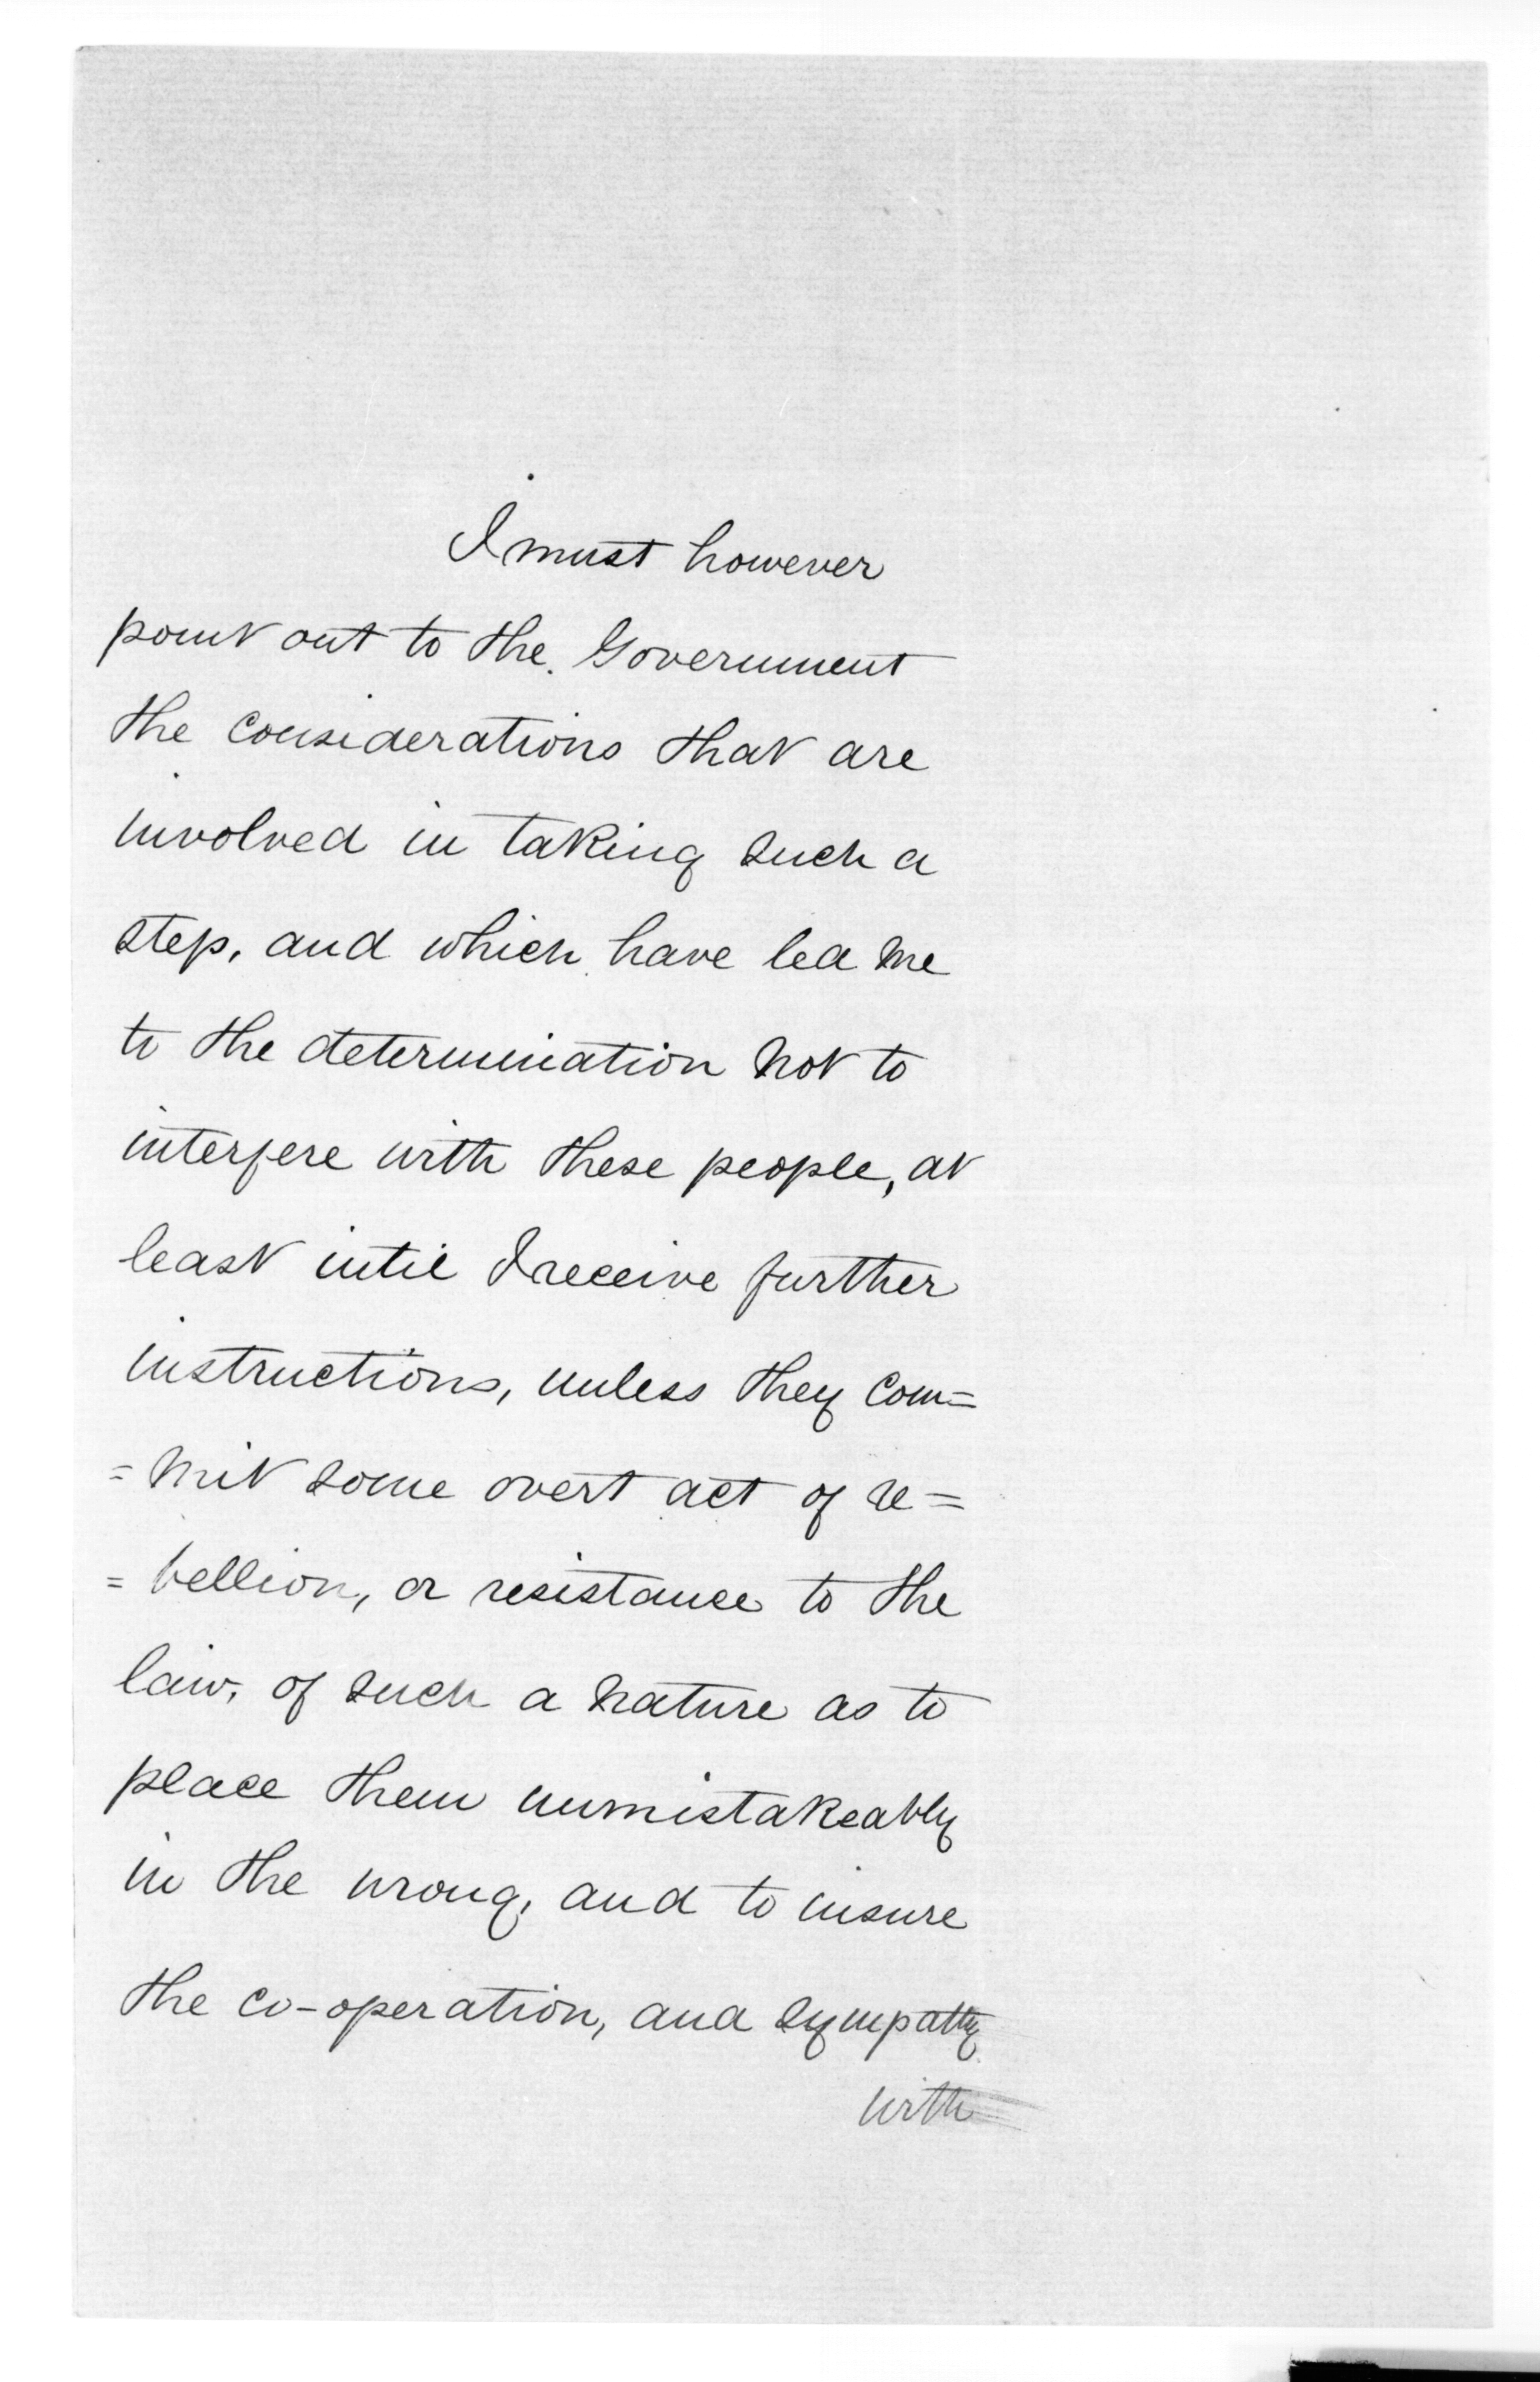 I must however
point out to the Government
the considerations that are
involved in taking such a
step, and which have led me
to the determination not to
interfere with these people, at
least intil I receive further
instructions, unless they com=
=mit some overt act of re=
=bellion, or resistance to the
law, of such a nature as to
place them unmistakeably
in the wrong, and to insure
the co-operation, and sympathy
with